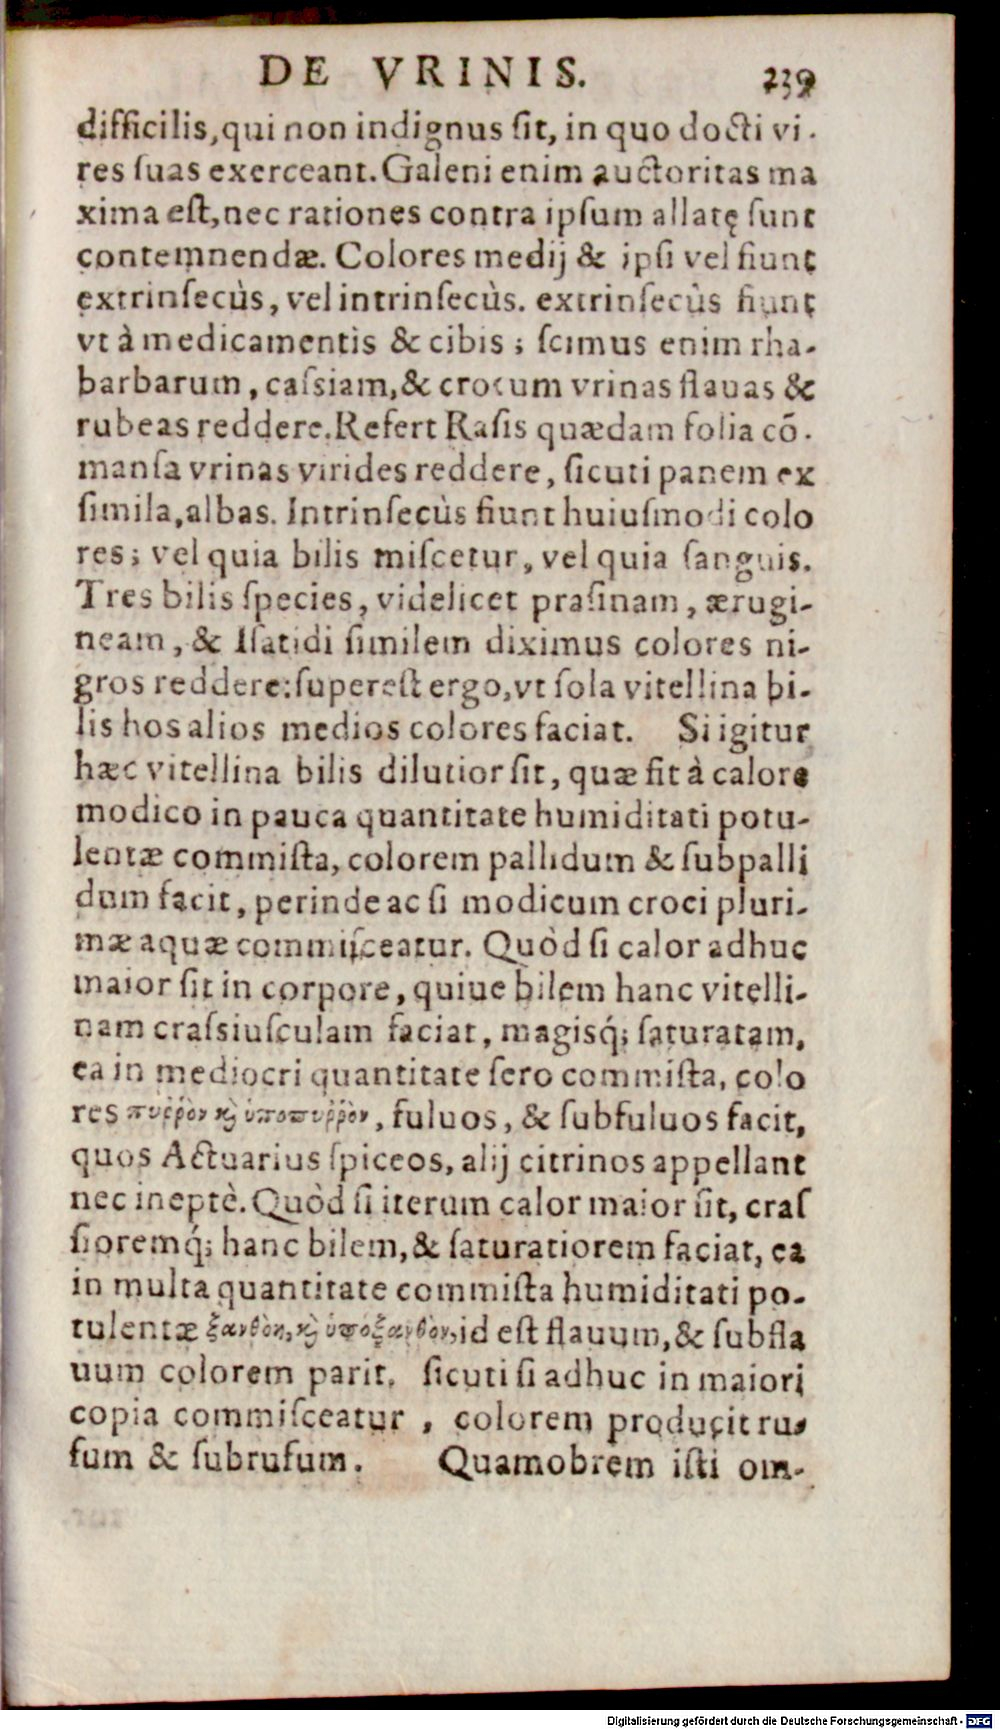 DE VRINIS. 239
difficilis, qui non indignus ſit, in quo docti vi-
res ſuas exerceant. Galeni enim auctoritas ma
xima eſt, nec rationes contra ipſum allatę ſunt
contemnendæ. Colores medij & ipſi vel fiunt
extrinſecùs, vel intrinſecùs. extrinſecùs fiunt
vt à medicamentis & cibis; ſcimus enim rha-
barbarum, caſsiam, & crocum vrinas flauas &
rubeas reddere. Refert Raſis quædam folia cō-
manſa vrinas virides reddere, ſicuti panem ex
ſimila, albas. Intrinſecùs fiunt huiuſmodi colo
res; vel quia bilis miſcetur, vel quia ſanguis.
Tres bilis ſpecies, videlicet praſinam, ærugi-
neam, & Iſatidi ſimilem diximus colores ni-
gros reddere: ſupereſt ergo, vt ſola vitellina bi-
lis hos alios medios colores faciat. Si igitur
hæc vitellina bilis dilutior ſit, quæ fit à calore
modico in pauca quantitate humiditati potu-
lentæ commiſta, colorem pallidum & ſubpalli
dum facit, perinde ac ſi modicum croci pluri-
mæ aquæ commiſceatur. Quòd ſi calor adhuc
maior ſit in corpore, quiue bilem hanc vitelli-
nam craſsiuſculam faciat, magisq́; ſaturatam,
ea in mediocri quantitate ſero commiſta, colo
res πυῤῥὸν κὶ ὑποπυῤῥὸν, fuluos, & ſubfuluos facit,
quos Actuarius ſpiceos, alij citrinos appellant
nec ineptè. Quòd ſi iterum calor maior ſit, craſ
ſioremq́; hanc bilem, & ſaturatiorem faciat, ea
in multa quantitate commiſta humiditati po-
tulentæ ξανθὸν, κὶ ὑποξανθὸν, id eſt flauum, & ſubfla
uum colorem parit. ſicuti ſi adhuc in maiori
copia commiſceatur, colorem producit ru-
fum & ſubrufum. Quamobrem iſti om-
Digitalisierung gefördert durch die Deutsche Forschungsgemeinschaft - DFG